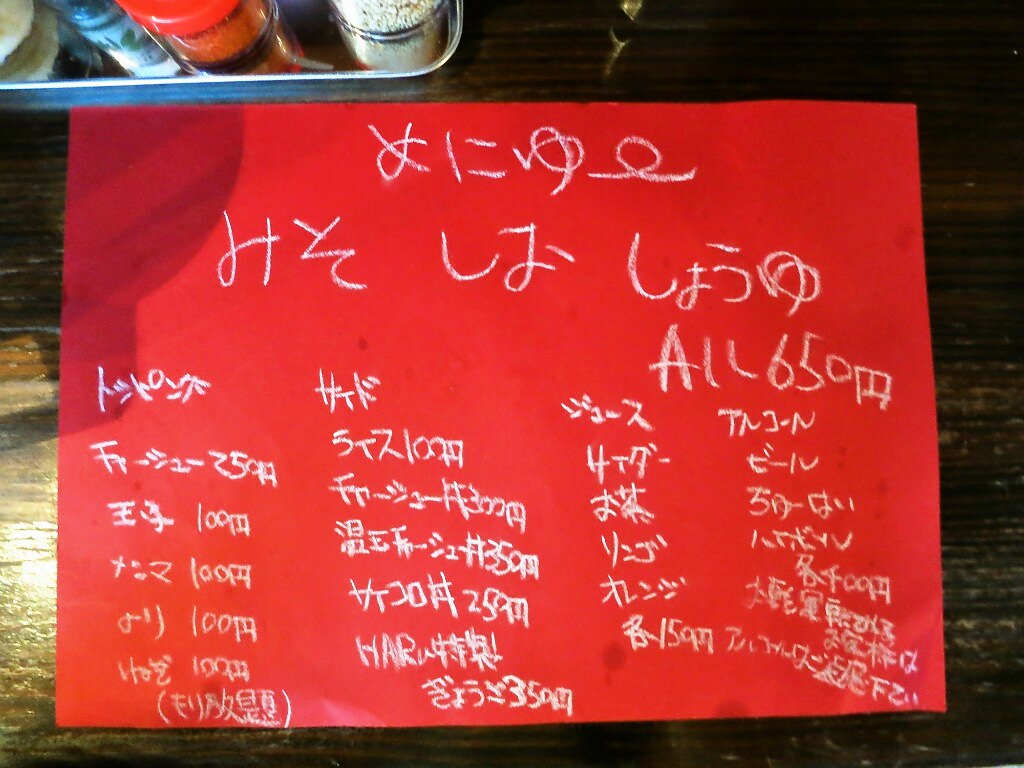 めにゅー
みそ しお しょうゆ
ALL 650円
トッピング
チャーシュー 250円
玉子 100円
メンマ 100円
のり 100円
ねぎ 100円
(モリ放題)
サイド
ライス100円
チャーシュー丼300円
温玉チャーシュー丼350円
サイコロ丼 250円
HARU特製!
ぎょうざ350円
ジュース
サイダー
お茶
リンゴ
オレンジ
各150円
アルコール
ビール
ちゅーはい
ハイボール
各400円
お客様は
アルコールはご遠慮下さい